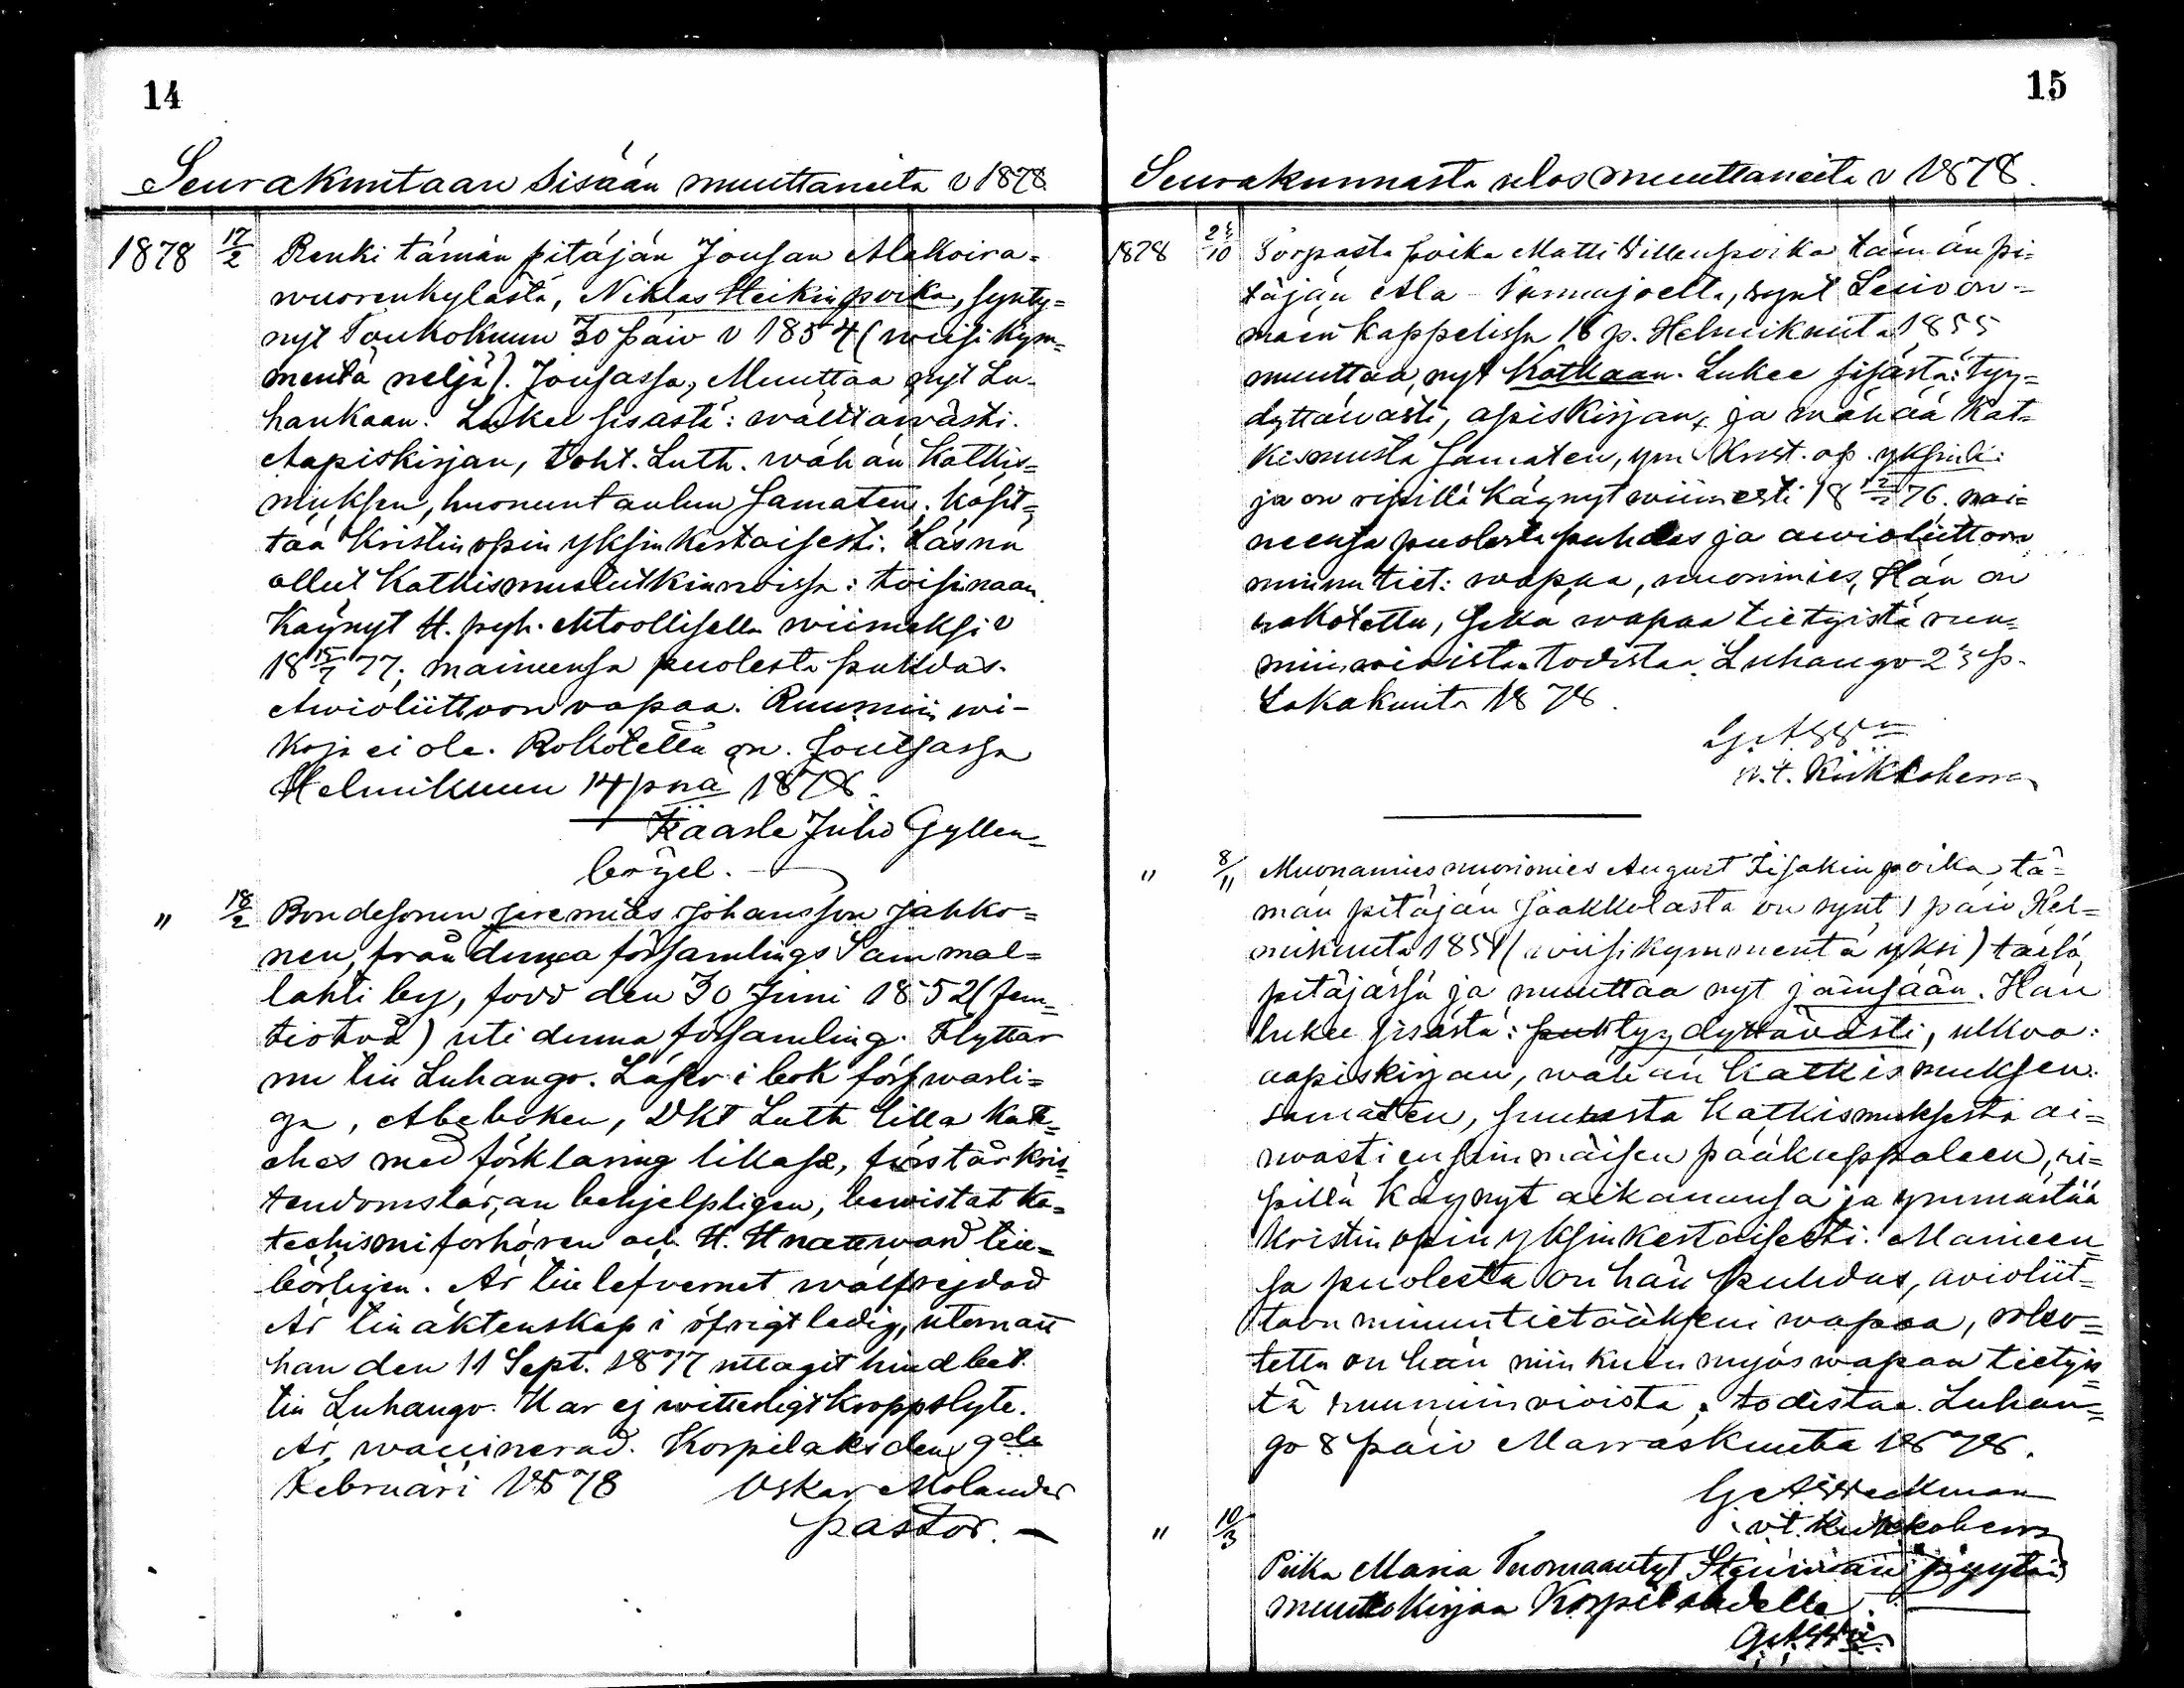 14
Seurakuntaan Sisään muuttaneita v 1878
1878 17/2 Renki tämän pitäjän Jousan Alakoira-
wuorenkylästä, Niklas Heikinpoika, synty=
nyt Toukokuun 30 päiv v 1854 (wiisikym=
mentä neljä). Jousassa, Muuttaa nyt Lu-
hankaan. Lukee sisästä: wälttäwästi.
Aapiskirjan, Toht. Luth. wähän Katkis=
muksen, huonuntaulun samaten. Käsit=
tää Kristinopin yksinkertaisesti. Läsnä
ollut Katkismuslutkinnoissa: toisinaan
Käynyt H. pyh. ehtoollisella wiimeksi v
18 15/7 77; maineensa puolesta puhdas.
Awioliittoon vapaa. Ruumiin wi-
koja ei ole. Rokotettu on. Joutsassa
Helmikuun 14 pnä 1878.
Kaarle Juho Gyllen=
bögel.
" 18/2 Bondesonen Jeremias Johansson Jahko=
nen, från denna församlings Sammal=
lahti by, född den 30 Juni 1852 (fem=
tiotvå) uti denna församling. Flyttar
nu till Luhango. Läser i bok förswarli=
ga, Abeboken, Dkt Luth lilla Kate=
ches med förklaring likaså, förstår kris=
tendomsläran behjelpligen, bewistat ka=
techismiförhören och H. H nattward till=
börligen. Är till lefvernet wälfrejdad
Är till äktenskap i öfrigt ledig, utom att
han den 11 Sept. 1877 uttagit hind bet.
till Luhango. Har ej witterligt kroppslyte.
Är waccinerad. Korpilaks den 9de
Februari 1878 Oskar Molander
pastor.
15
Seurakunnasta ulos muuttaneita v 1878.
1878 23/10 Torpasta poika Matti Villenpoika tämän pi=
täjän Ala- , synt Leivon=
mäen kappelissa 16 p. Helmikuuta 1855
muuttaa nyt Kotkaan. Lukee sisästä: tyy=
dyttäwästi, apiskirjan, ja wähää Kat=
kismusta samaten, ym Krist. op. yksink:
ja on ripillä käynyt wiimesti 18 76. mai=
neensa puolesta puhdas ja awioliittoon
minun tiet: wapaa, nuorimies, Hän on
rokotettu, sekä wapaa tietyistä ruu=
miinwioista todistaa. Luhango 23 p.
Lokakuuta 1878.
v.t. Kirkkoherra
" 8/11 Muonamies nuorimies August Iisakinpoika, tä=
män pitäjän Jaakkolasta on synt 1 päiv Hel=
mikuuta 1851 (wiisikymmentä yksi) tässä
pitäjässä ja muuttaa nyt Jämsään. Hän
lukee sisästä: tyydyttävästi, ulkoa:
aapiskirjan, wähän Katkismuksen
samaten, suuresta Katkismuksesta ai=
nvasti ensimmäisen pääkappaleen, ri=
pillä käynyt aikananansa ja ymmärtää
Kristin opin yksinkertaisesti. Maineen=
sa puolesta on hän puhdas, avioliit=
toon minun tietääkseni wapaa, roko=
tettu on hän niin kuin myös wapaa tietyis=
tä ruumiin vioista, todistaa. Luhan=
go 8 päiv Marraskuuta 1878.
G A Weckman
vt. kirkkoherra
" 10/3
Piika Maria Tuomaantyt pyytää
muuttokirjaa Korpilahdelle.